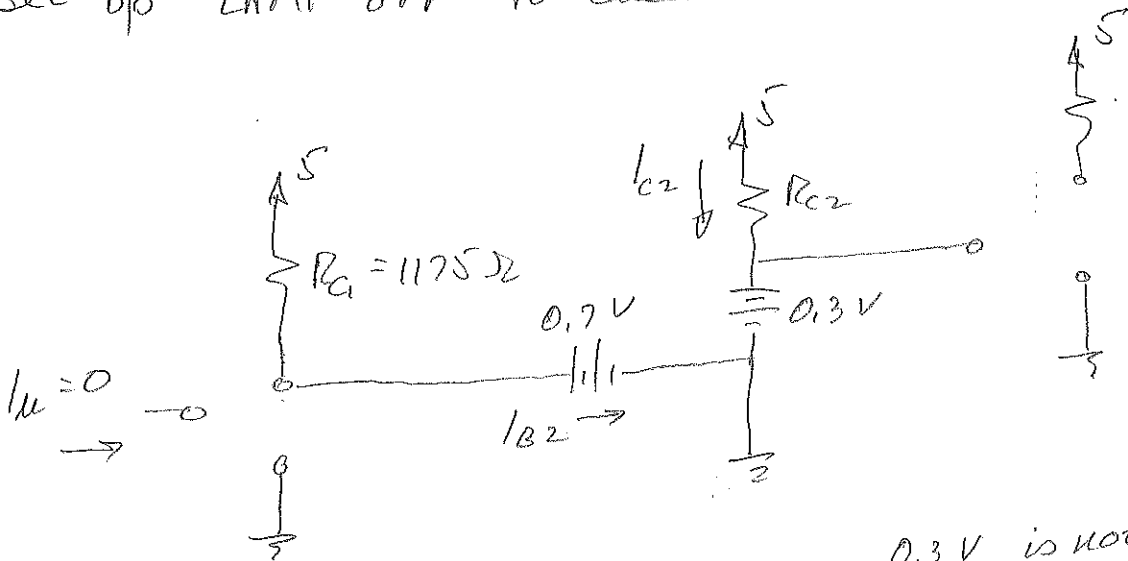 5
5
5
I_C2
R_C2
R_C1 = 1175 Ω
0,7 V
0,3 V
I_B2
= 0
0,3 V is